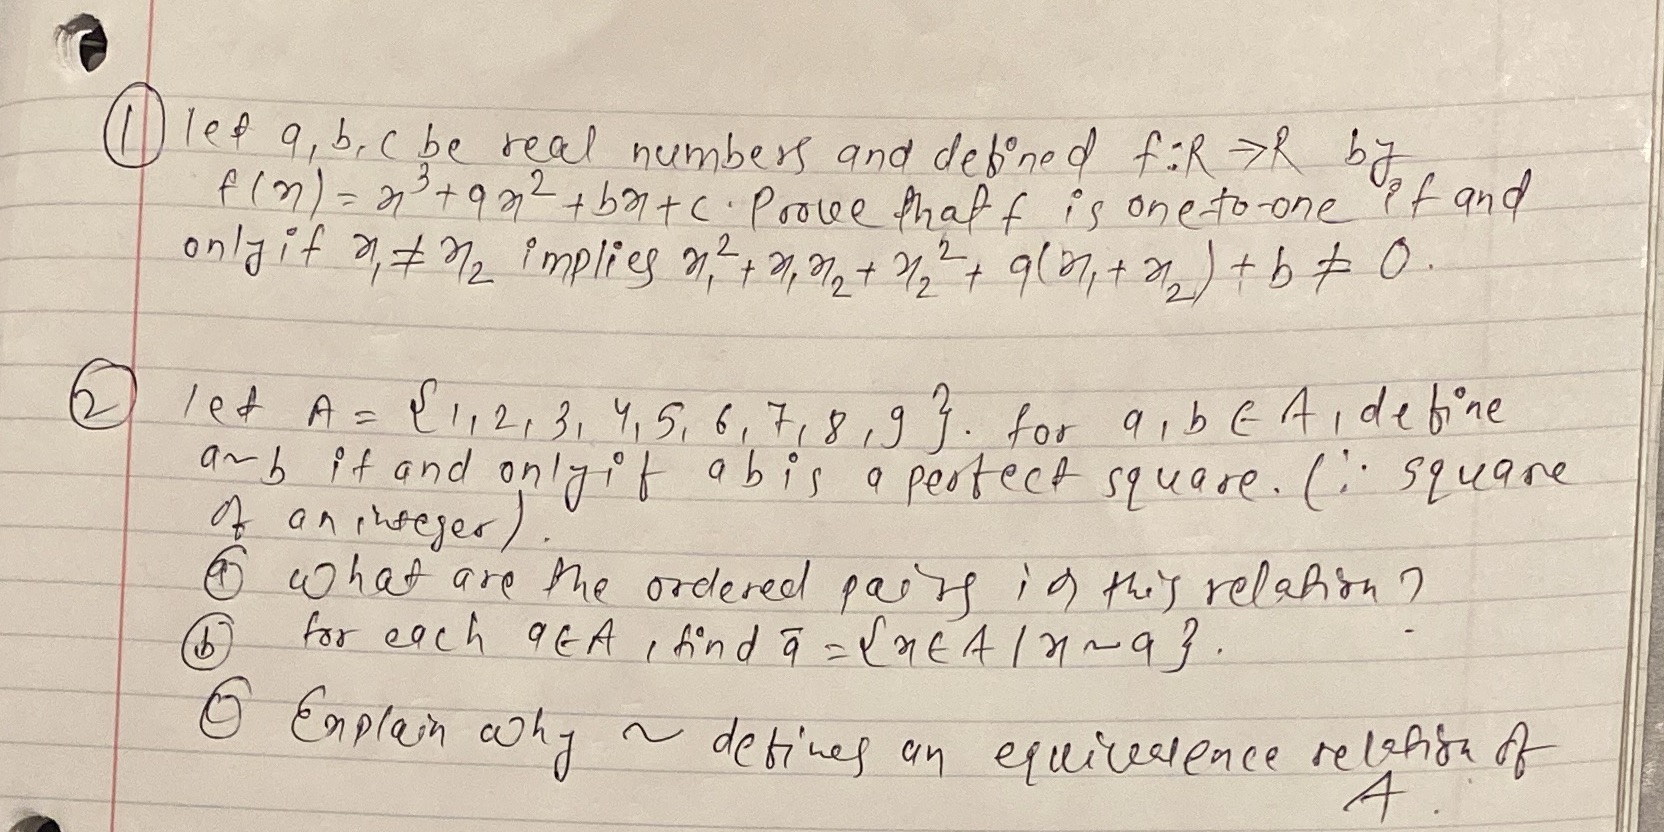 ① let a, b, c be real numbers and defined f: R → R by
f(x) = x³ + ax² + bx + c. Prove that f is one-to-one if and
only if x₁ ≠ x₂ implies x₁² + x₁x₂ + x₂² + a(x₁ + x₂) + b ≠ 0.
② let A = {1, 2, 3, 4, 5, 6, 7, 8, 9}. for a, b ∈ A, define
a~b if and only if ab is a perfect square. (∴ square
of an integer).
ⓐ What are the ordered pairs in this relation?
ⓑ for each a ∈ A, find ā = {x ∈ A | x ~ a}.
ⓒ Explain why ~ defines an equivalence relation of
A.